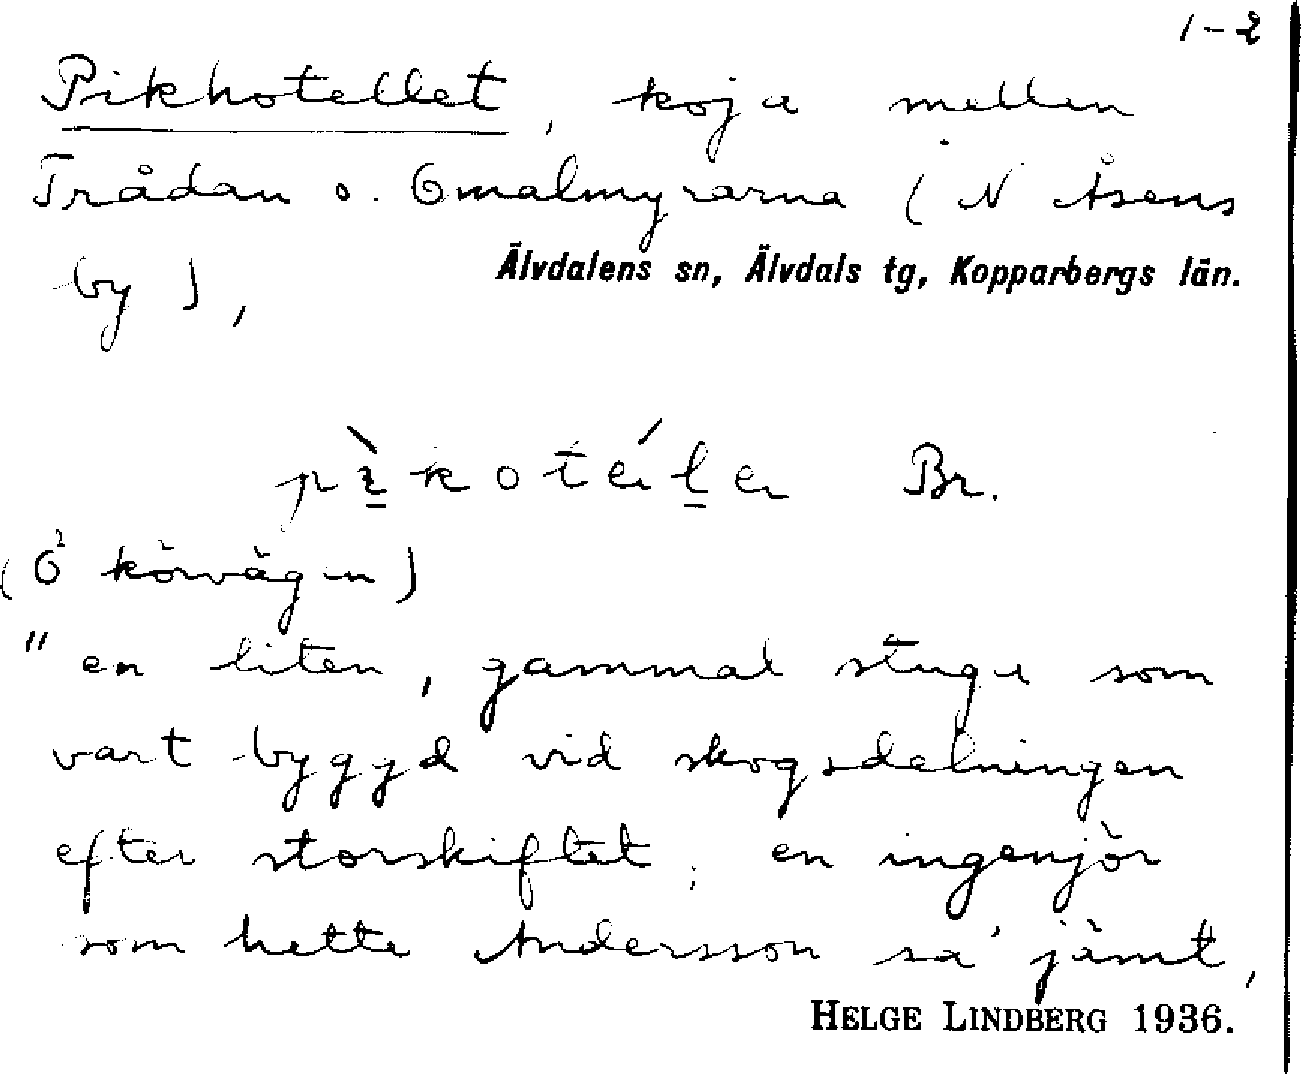 1-2
Pikhotellet, koja mellan
Trådan o. Ömalmyrarna (N Åsens
by),
Älvdalens sn, Älvdals tg, Kopparbergs län.
pìkotéle Br.
(Ö körvägen)
"en liten, gammal stuga som
vart byggd vid skogsdelningen
efter storskiftet; en ingenjör
som hette Andersson sa' jämt,
HELGE LINDBERG 1936.